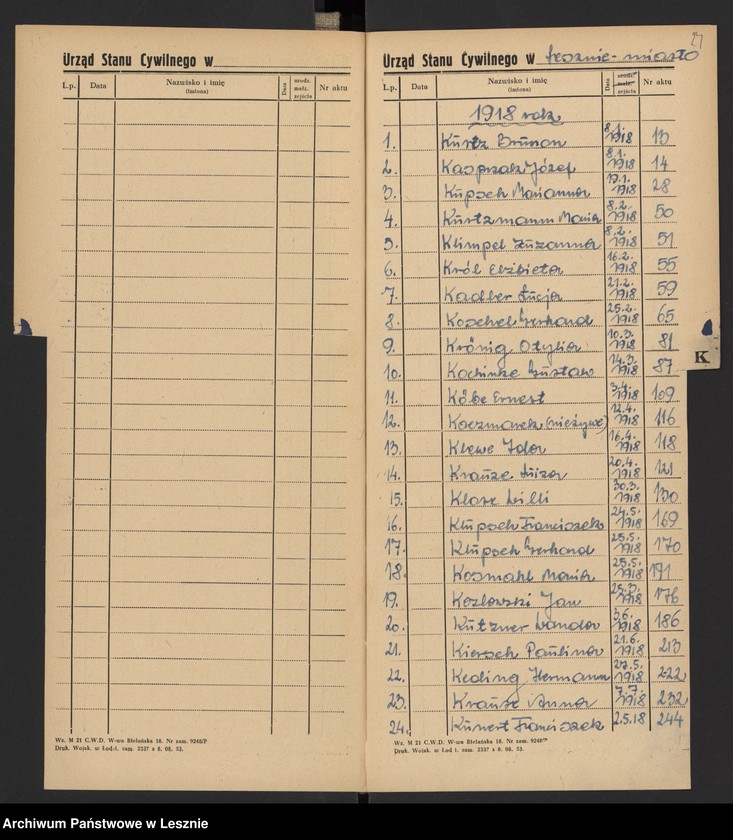 27
Urząd Stanu Cywilnego w
L.p. Data Nazwisko i imię (imiona) Data urodz. małż. zejścia Nr aktu
Wz. M 21 C.W.D. W-wa Bielańska 18. Nr zam. 9248/P
Druk. Wojsk. w Łodzi. zam. 2537 z 8. 08. 52.
Urząd Stanu Cywilnego w Lesznie-miasto
L.p. Data Nazwisko i imię (imiona) Data urodz. małż. zejścia Nr aktu
1918 rok
1. Kurtz Brunon 8.1. 1918 13
2. Kasprzak Józef 8.1. 1918 14
3. Kupsch Marianna 19.1. 1918 28
4. Kurtzmann Maria 8.2. 1918 50
5. Klimpel Zuzanna 8.2. 1918 51
6. Król Elżbieta 16.2. 1918 55
7. Kadler Łucja 21.2. 1918 59
8. Koschel Gerhard 25.2. 1918 65
9. Krönig Otylia 10.3. 1918 81
10. Kochinke Gustaw 14.3. 1918 87
11. Köbe Ernest 3.4. 1918 109
12. Kaczmarek (nieżywe) 12.4. 1918 116
13. Klewe Ida 16.4. 1918 118
14. Krauze Luiza 20.4. 1918 121
15. Klose Willi 30.3. 1918 130
16. Klupsch Franciszek 24.5. 1918 169
17. Klupsch Gerhard 25.5. 1918 170
18. Kosmahl Maria 25.5. 1918 171
19. Kozlowski Jan 25.3. 1918 176
20. Kutzner Wanda 3.6. 1918 186
21. Kiersch Paulina 21.6. 1918 213
22. Keding Hermann 27.5. 1918 222
23. Krause Anna 7.7. 1918 232
24. Kunert Franciszek 2.5.18 244
K
Wz. M 21 C.W.D. W-wa Bielańska 18. Nr zam. 9248/P
Druk. Wojsk. w Łodzi. zam. 2537 z 8. 08. 52.
Archiwum Państwowe w Lesznie